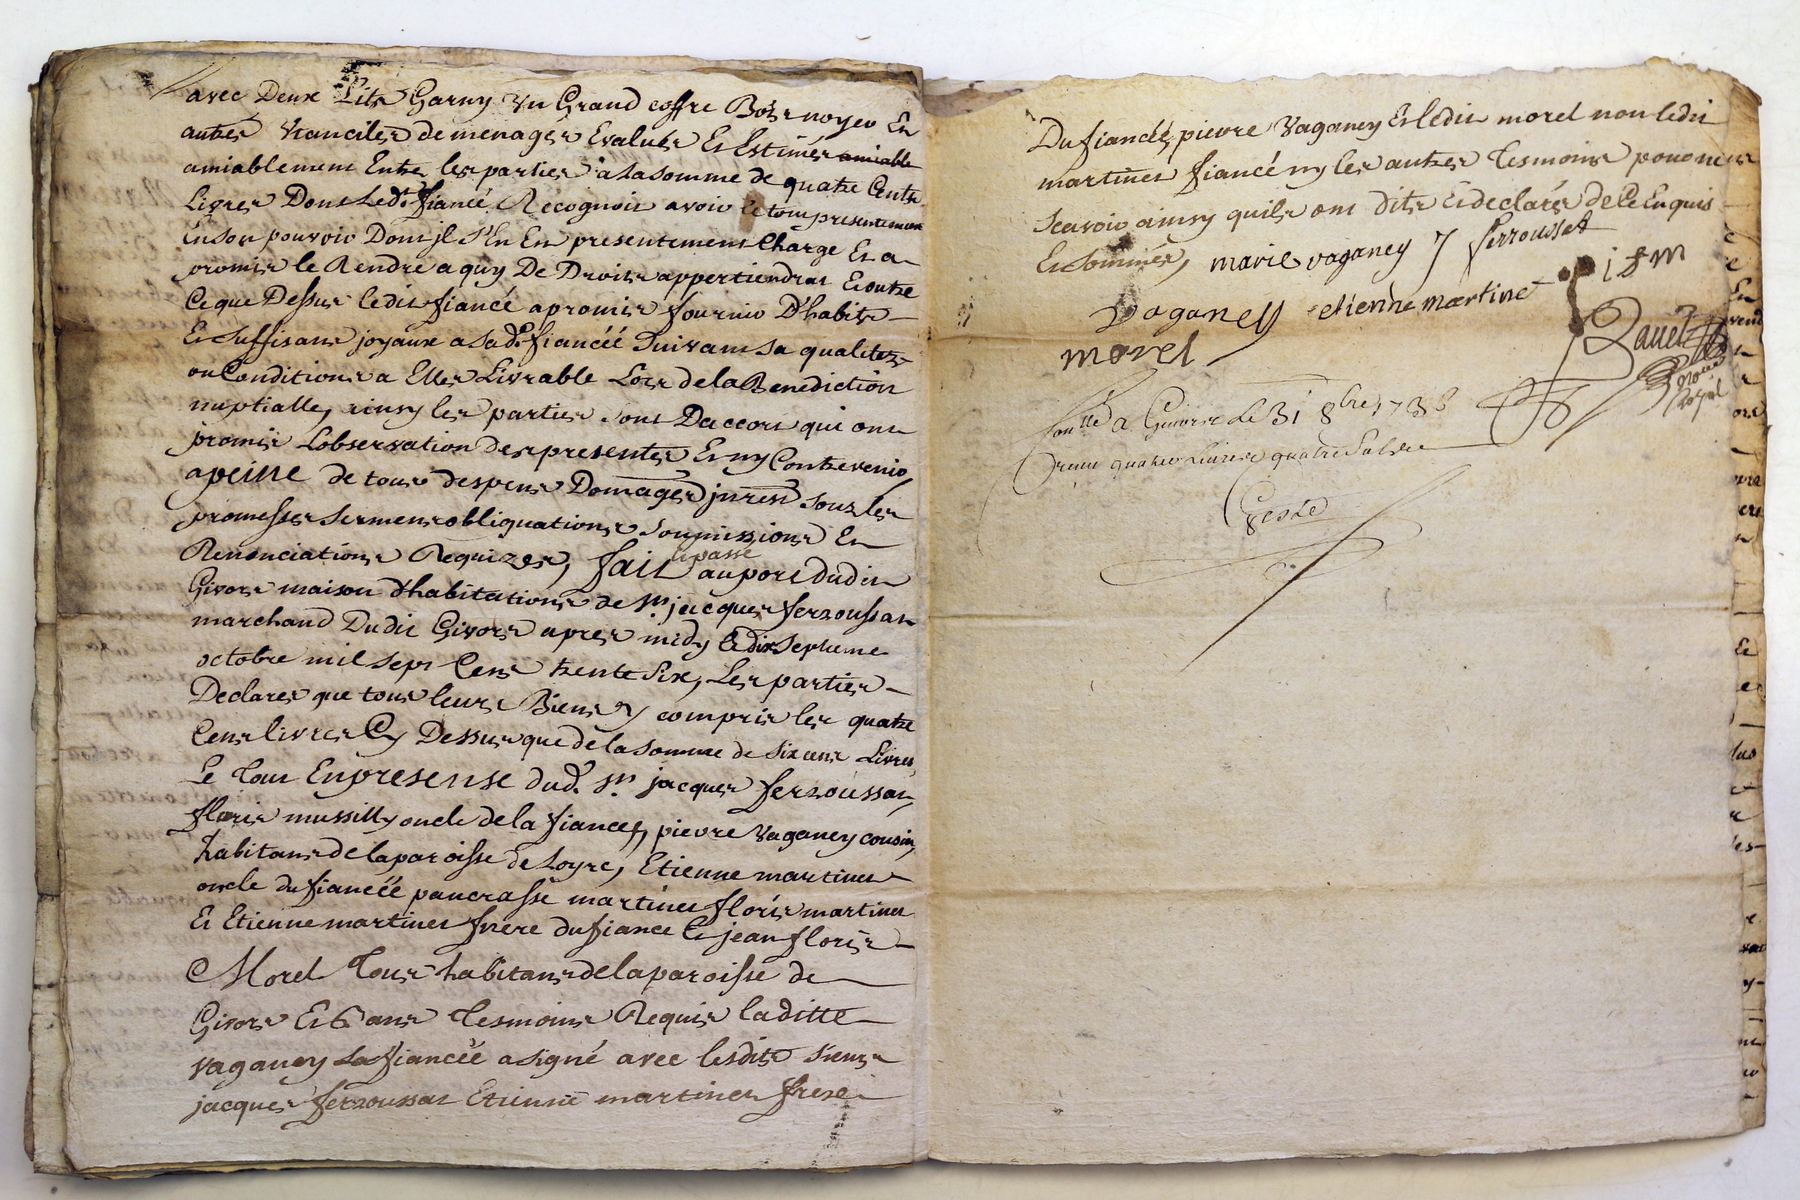 avec Deux Lits Garny Un Grand coffre Bois noyer Et
autres Utanciles de menages Evalués Et Estimés amiable
amiablement Entre les parties a la somme de quatre Cents
Livres Dont Led. fiancé Recognoit avoir le tout presentement
En son pouvoir Dont jl S'En Est presentement Charge Et a
promis le Rendre a quy De Droits appertiendrat Et outre
Ce que Dessus ledit fiancé a promis fournir D'habits
Et suffisans joyaux a sad. fiancéé Suivant sa qualitez
ou Conditions a Elles Livrable Lors de la Benediction
nuptialle, ainsy les parties sont Daccort qui ont
promis Lobservation des presentes Et ny Contrevenir,
apeine de tous despens Domages jnrest souz les
promesses serments obliquations soumissions Et
Renonciations Requizes, fait et passé au port dudit
Givors maison d'habitations de Sr. jacques ferroussat
marchand Dudit Givors apres midy le dix septieme
octobre mil sept Cens trente Six, Les parties
Declares que tous leurs Biens y compris les quatre
Cens livres Cy Dessus que de la somme de six cens Livres,
Le Tout En presense dud. Sr. jacques ferroussat,
floris mussilly oncle de la fiancéé, pierre Vaganey cousin,
habitans de la paroisse de Loyre, Etienne martinet
oncle du fiancéé pancrasse martinet floris martinet
Et Etienne martinet frere du fiance Et jean floris
Morel Tous habitans de la paroisse de
Givors Et Bans Tesmoins Requis laditte
vaganey La fiancéé a signé avec lesdits sieurs
jacques ferroussat Etienne martinet frere
Du fiancéé, pierre Vaganey Et ledit morel non ledit
martinet fiancé ny les autres Tesmoins pour ne
scavoir ainsy quils ont dits Et declarés de Ce Enquis
Et sommés, marie vaganey J ferroussat
vaganey etienne martinet i f m
morel
Ravet
Noire
Royal
Conllé a Givors Le 31 8bre 1736
Receu quatre Livres quatre Sols
Geste